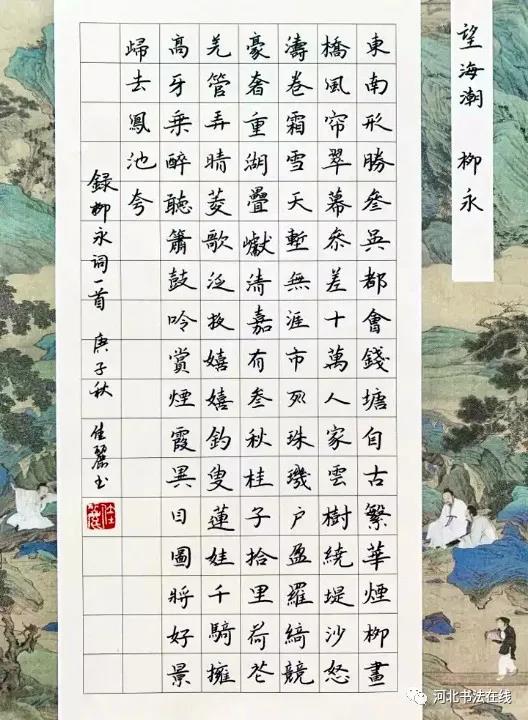 望海潮 柳永
東南形勝叁吳都會錢塘自古繁華煙柳畫
橋風帘翠幕叅差十萬人家雲樹繞堤沙怒
濤卷霜雪天塹無涯市列珠璣户盈羅綺競
豪奢重湖疊巘清嘉有叁秋桂子拾里荷花
羌管弄晴菱歌泛夜嬉嬉釣叟蓮娃千騎擁
高牙乘醉聽簫鼓吟賞煙霞異日圖將好景
歸去鳳池夸
録柳永词一首 庚子秋 佳麗书
河北书法在线